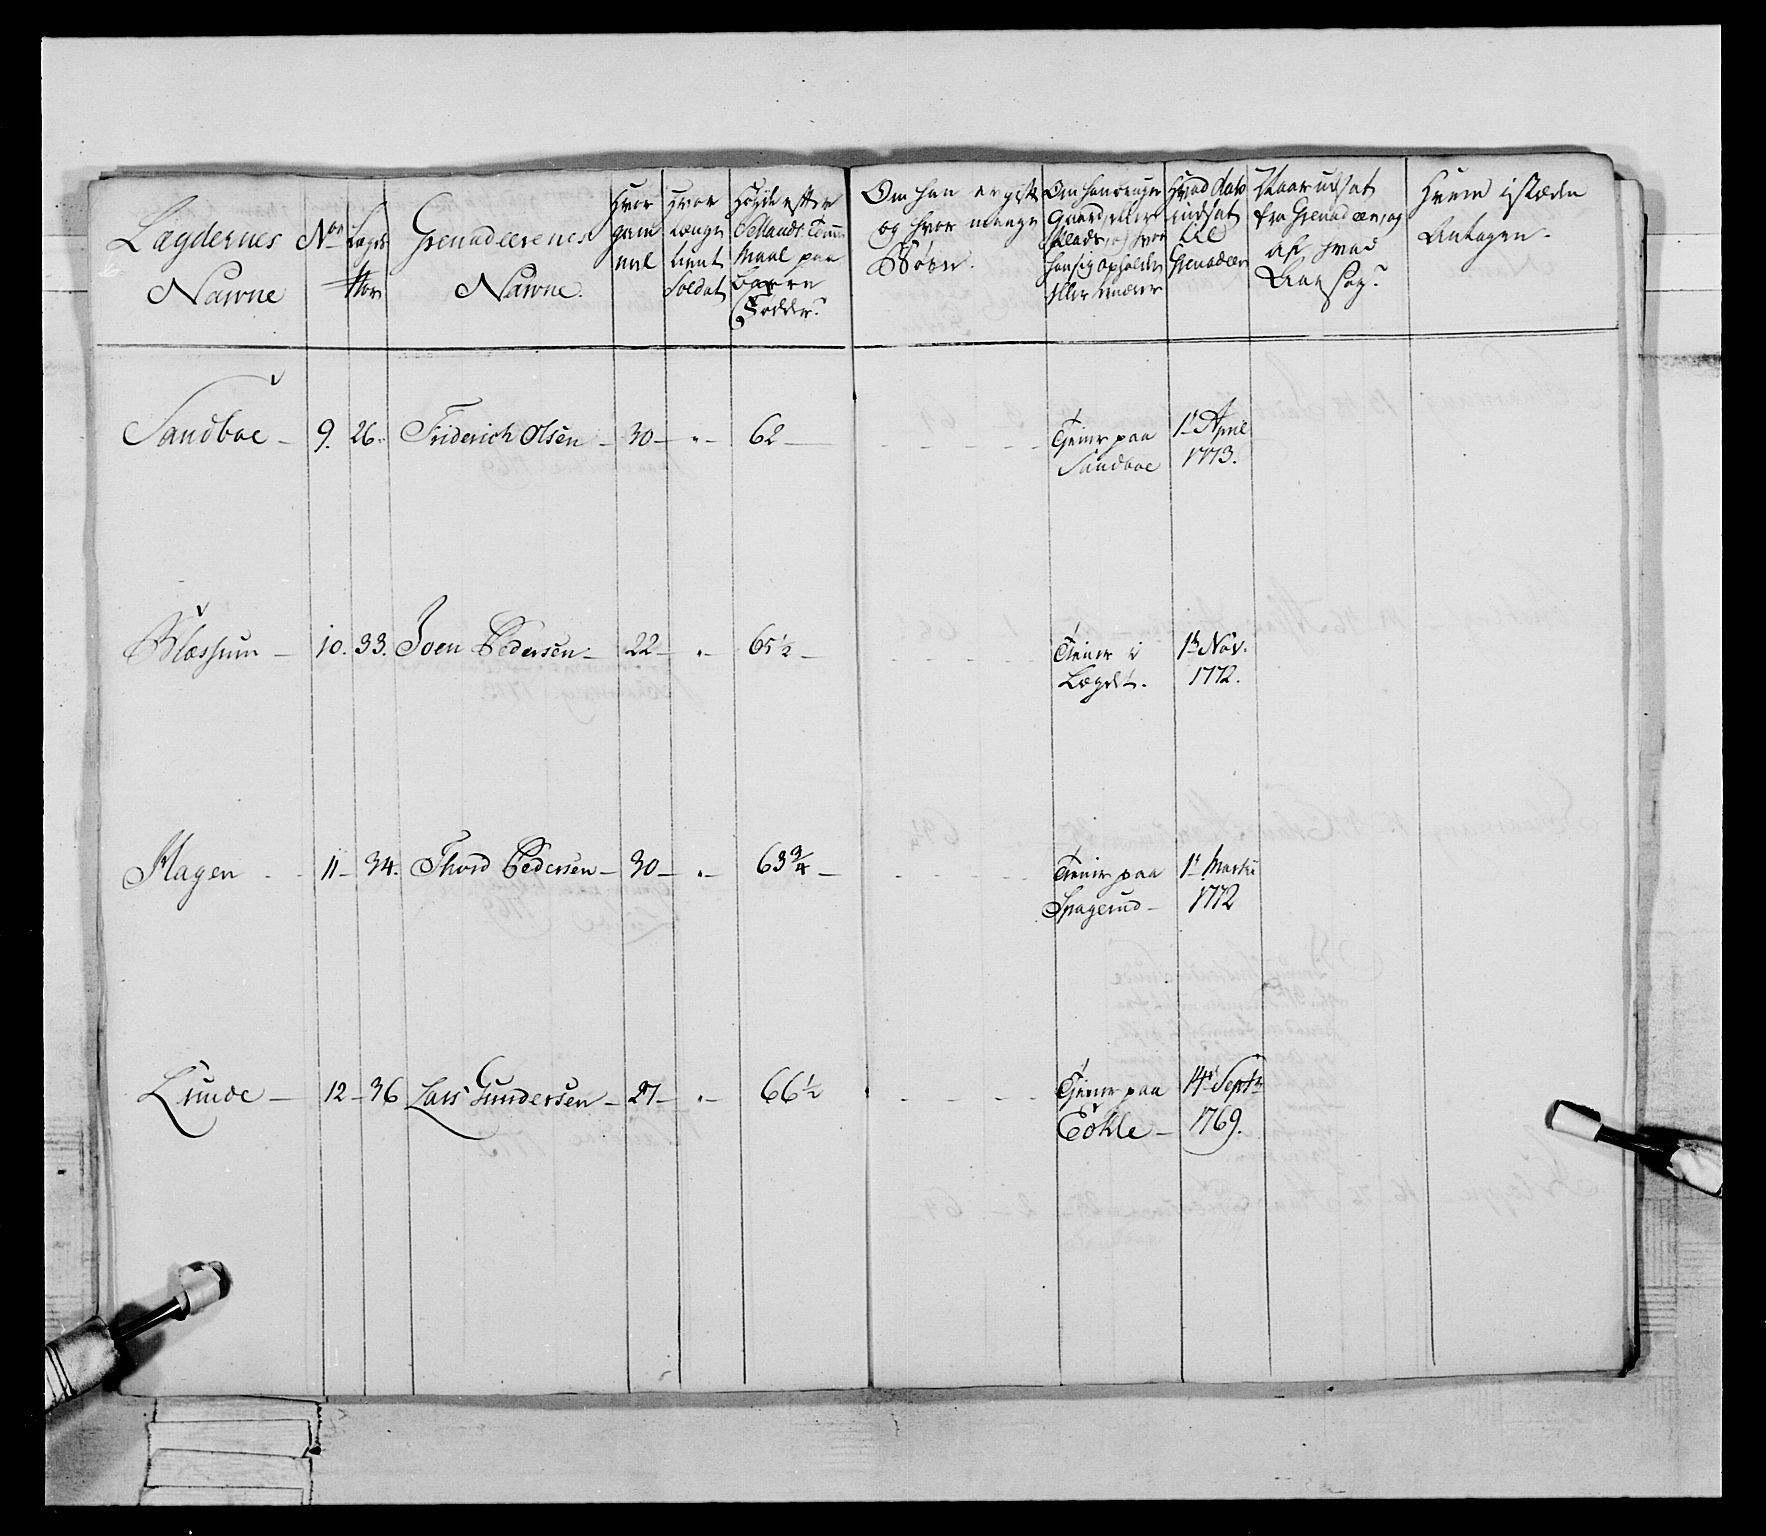 Lægdernes Nawne
No
Lægds Nor
Grenadeerenes Nawne.
Hvor gammel
Hvor længe tient Soldat
Høyde efter Sellands Tomme Maal paa barre Fødder?
Om han er gift og hvor mange Børn.
Om han bruger Gaard eller Plads, og hvor han sig opholder eller tiener
Hvad dato indsat til Grenadeer
Naar udsat fra Grenadeer, og af hvad Aarsag?
Hvem i stæden Antagen.
Sandboe – 9. 26. Friderich Olsen – 30 – " – 62 – Tiener paa Sandboe 1t April 1773.
Blessum – 10. 33. Joen Pedersen – 22 – " – 65½ – Tiener i Lægdet. 1t Nov. 1772.
Hagen – 11 – 34. Thord Pedersen – 30 – " – 63¾ – Tiener paa Spagerud – 1t Martii 1772
Lunde – 12 – 36 Lars Gundersen – 27 – " – 66½ Tiener paa Eökle – 14t Septr 1769.